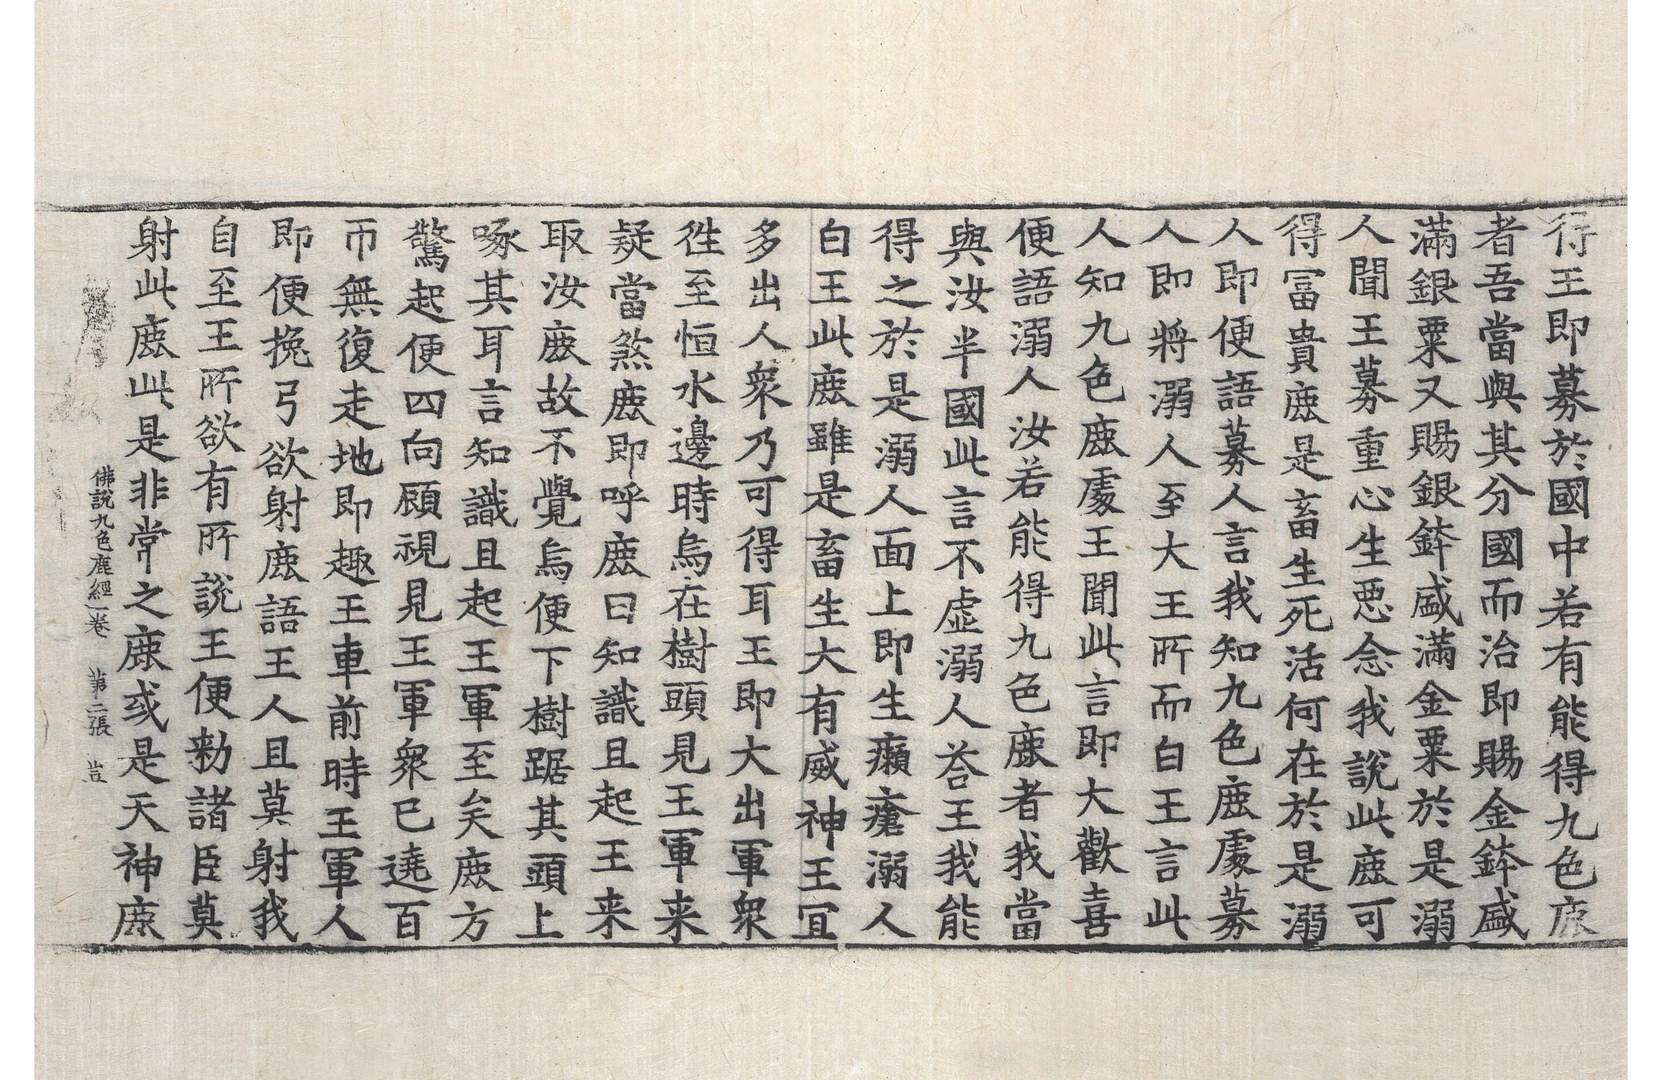 得王即募於國中若有能得九色鹿
者吾當與其分國而治即賜金鉢盛
滿銀粟又賜銀鉢盛滿金粟於是溺
人聞王募重心生惡念我說此鹿可
得冨貴鹿是畜生死活何在於是溺
人即便語募人言我知九色鹿處募
人即將溺人至大王所而白王言此
人知九色鹿處王聞此言即大歡喜
便語溺人汝若能得九色鹿者我當
與汝半國此言不虛溺人荅王我能
得之於是溺人面上即生癩瘡溺人
白王此鹿雖是畜生大有威神王冝
多出人衆乃可得耳王即大出軍衆
徃至恒水邊時烏在樹頭見王軍来
疑當煞鹿即呼鹿曰知識且起王来
取汝鹿故不覺烏便下樹踞其頭上
啄其耳言知識且起王軍至矣鹿方
驚起便四向顧視見王軍衆已遶百
帀無復走地即趣王車前時王軍人
即便挽弓欲射鹿語王人且莫射我
自至王所欲有所說王便勑諸臣莫
射此鹿此是非常之鹿或是天神鹿
佛說九色鹿經一卷 第二張 豈